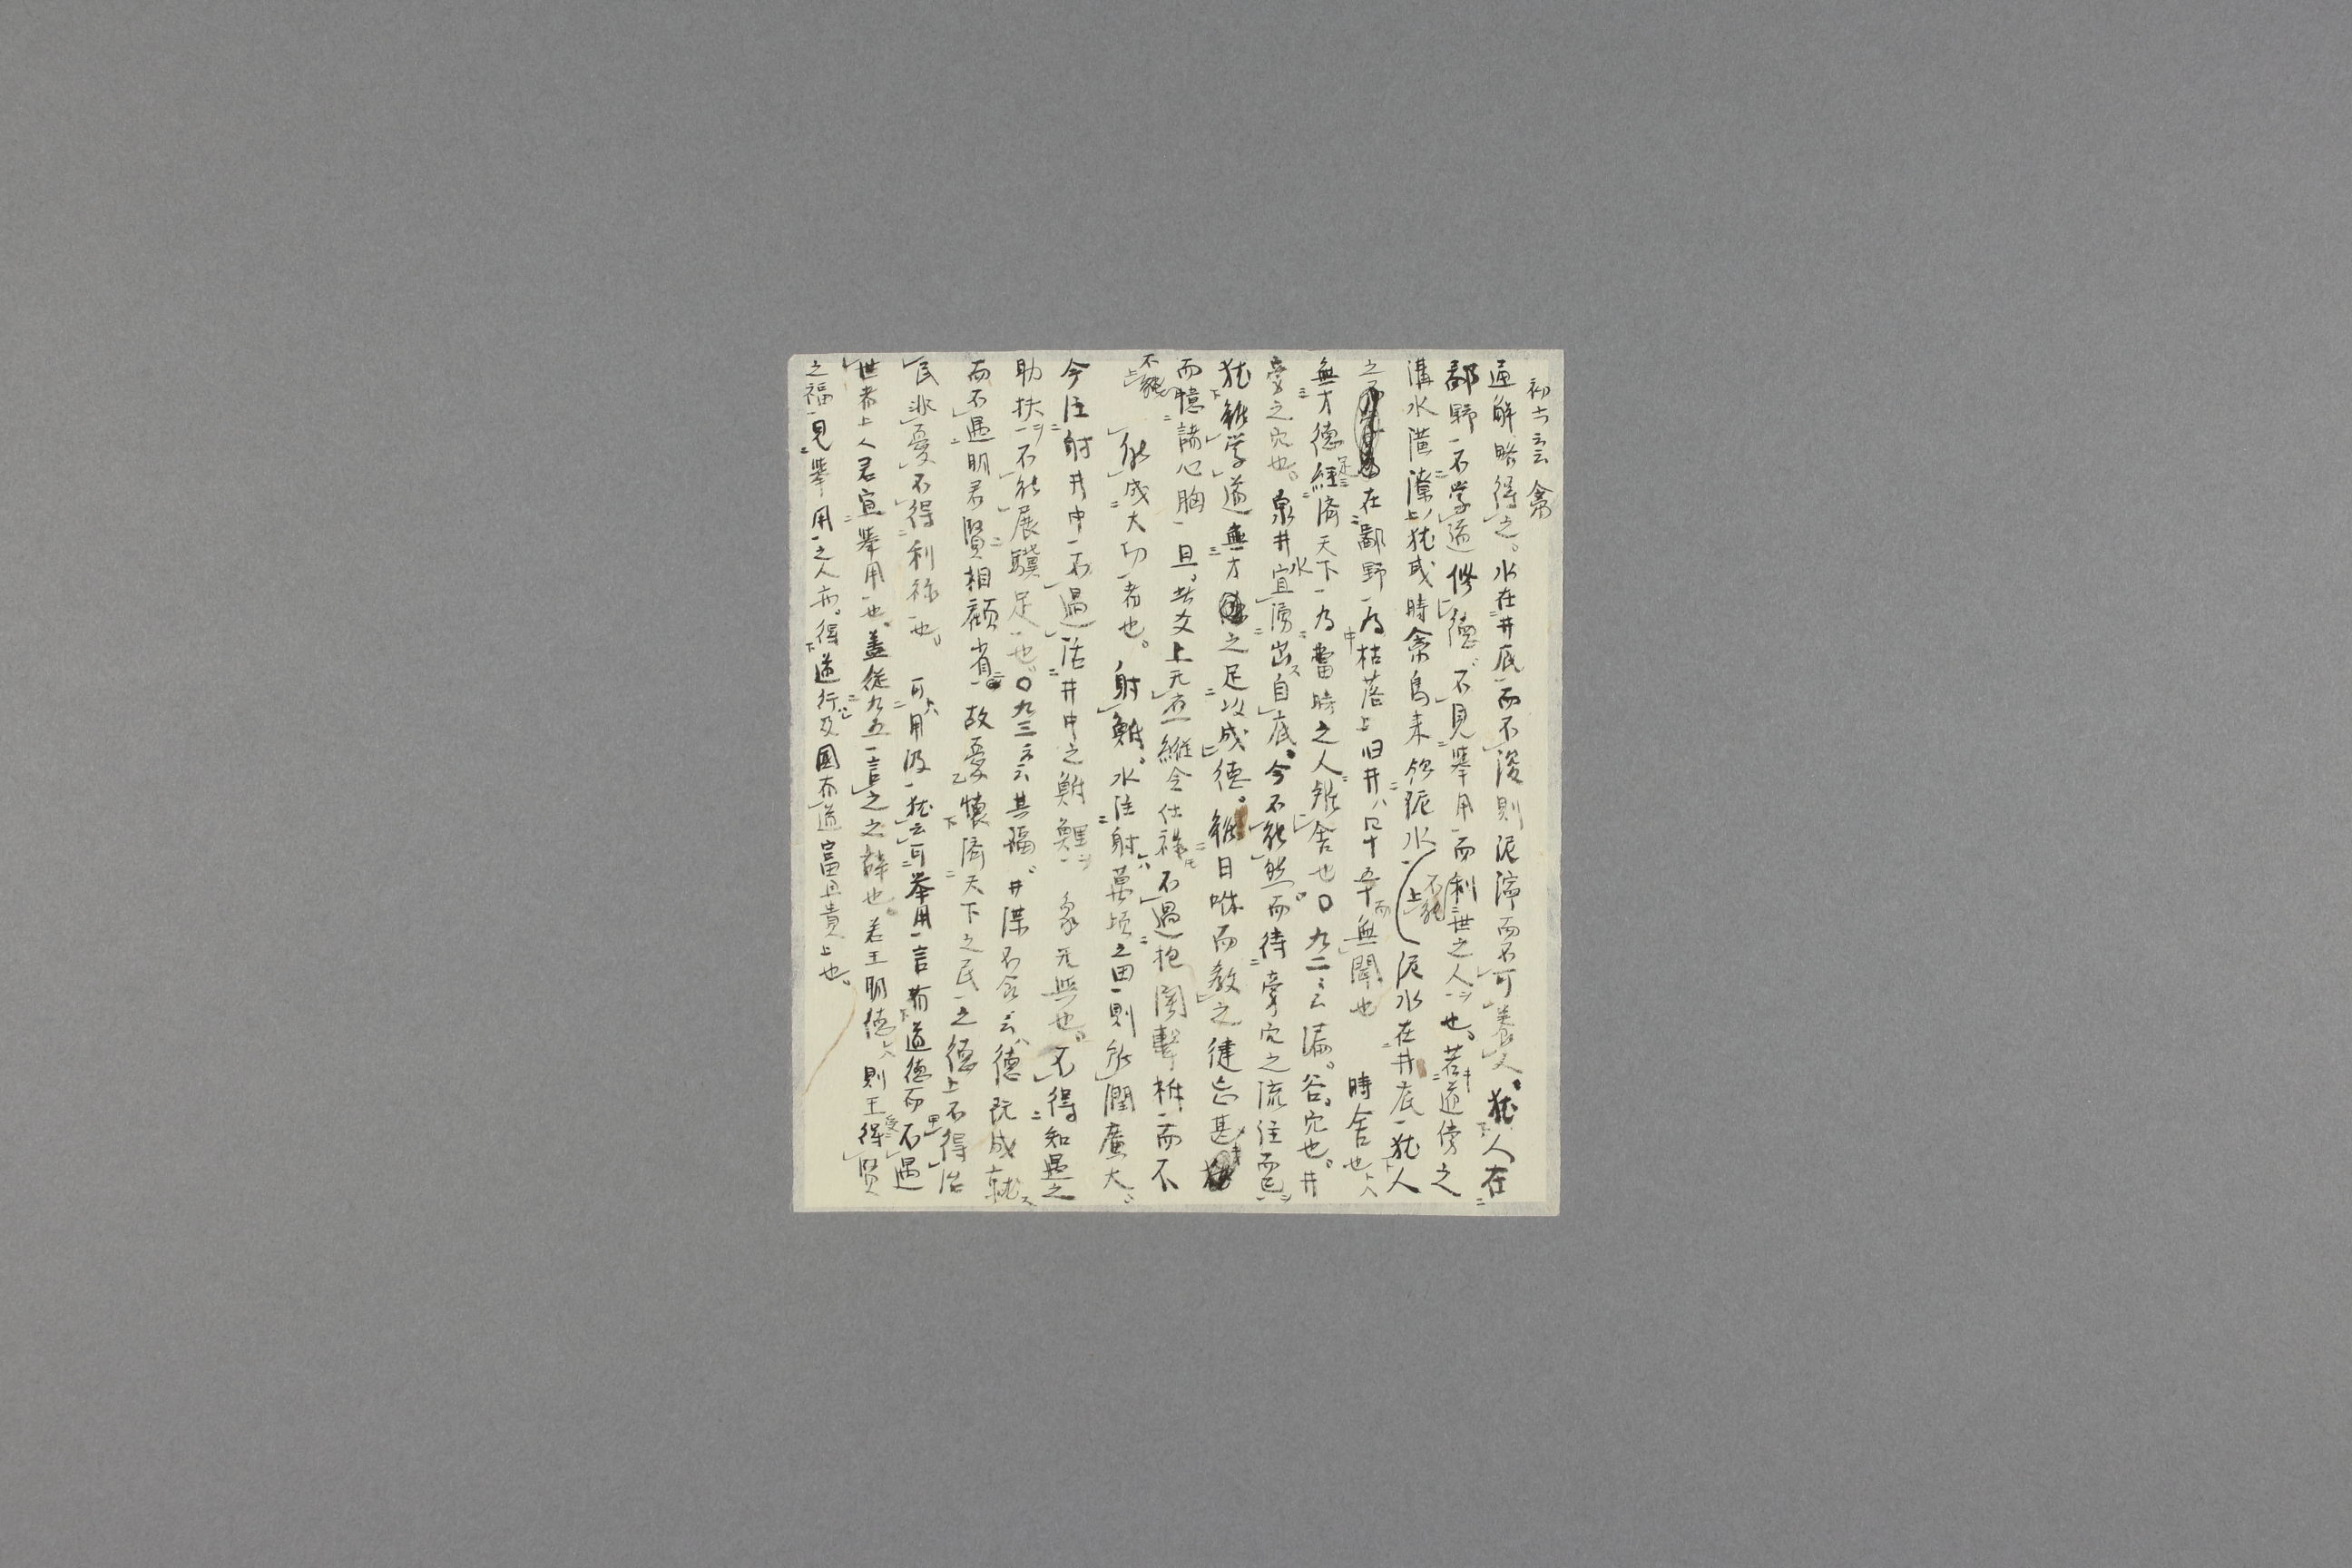 初六云禽
通解略得之。水在井底而不浚則泥滓而不可養人。犹人在
鄙野不学道修德不見挙用而利世之人也。若道傍之
溝水潢潦犹或時禽鳥来飲泥水不能泥水在井底犹人
之在鄙野為枯落上旧井四十五十而無聞也 時舍也
無才德足経済天下為當時之人雖舍也〇九二云漏。谷。穴也。井
旁之穴也。泉井宜水湧出自底。今不能然而待旁穴之流注而已
犹雖学道無才之足以成德。雖日誨而教之健忘甚
而憶諸心胸一旦。此爻上无応縦令仕禄不過抱関撃柝而不
不能 能成大功者也。射鮒。水注射万頃之田則能潤廣大
今注射井中不過活井中之鮒鯉 象无與也。不得知遇之
助扶不能展驥足也。〇九三云其福。井渫不食云德既成就
而不遇明君賢相顧省故憂懐済天下之民之德上不得治
民非憂不得利禄也。 可用汲犹云可挙用言有道德而不遇
世者上人君宜挙用也。蓋従九五言之之辞也。若王明德則王得受賢
之福見挙用之人亦得道行及國有道富且貴上也。